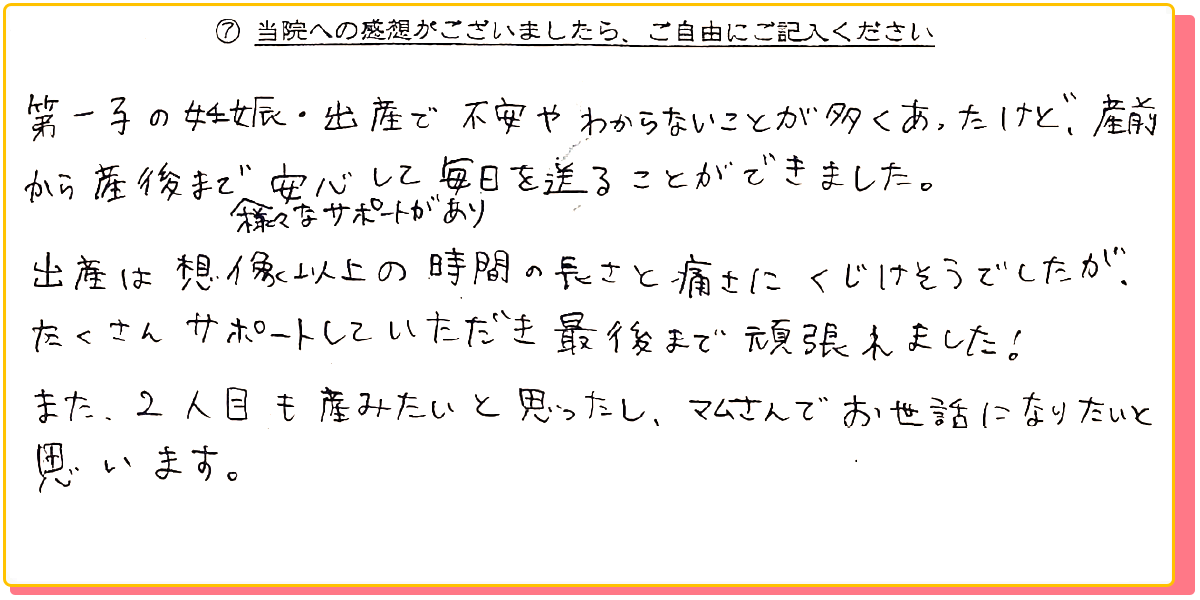 ⑦ 当院への感想がございましたら、ご自由にご記入ください
第一子の妊娠・出産で不安やわからないことが多くあったけど、産前
から産後まで安心して毎日を送ることができました。
様々なサポートがあり
出産は想像以上の時間の長さと痛さにくじけそうでしたが、
たくさんサポートしていただき最後まで頑張れました!
また、2人目も産みたいと思ったし、マムさんでお世話になりたいと
思います。